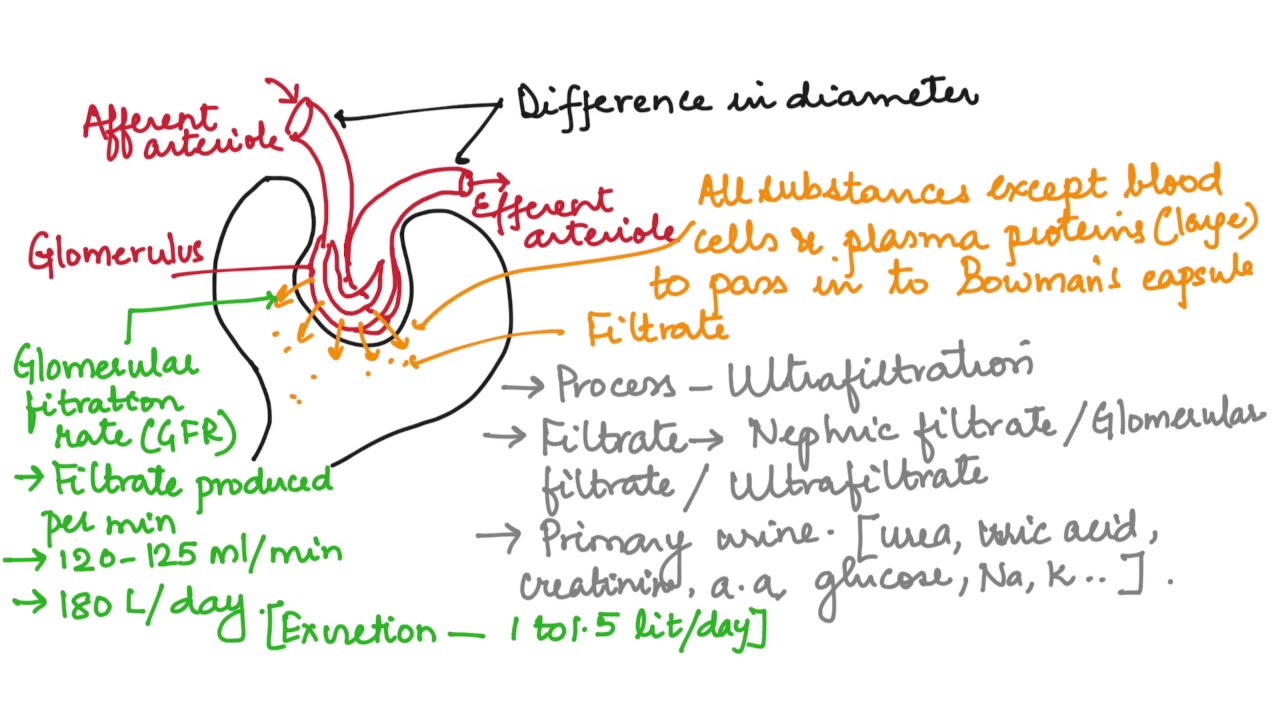 Difference in diameter
Afferent
arteriole
Efferent
arteriole
All substances except blood
cells & plasma proteins (large)
to pass in to Bowman's capsule
Glomerulus
Filtrate
Glomerular
fitration
rate (GFR)
→ Filtrate produced
per min
→ 120-125 ml/min
→ 180 L/day.
[Excretion — 1 to 1.5 lit/day]
→ Process - Ultrafiltration
→ Filtrate → Nephric filtrate / Glomerular
filtrate / Ultrafiltrate
→ Primary urine. [urea, uric acid,
creatinin, a.a, glucose, Na, K..].